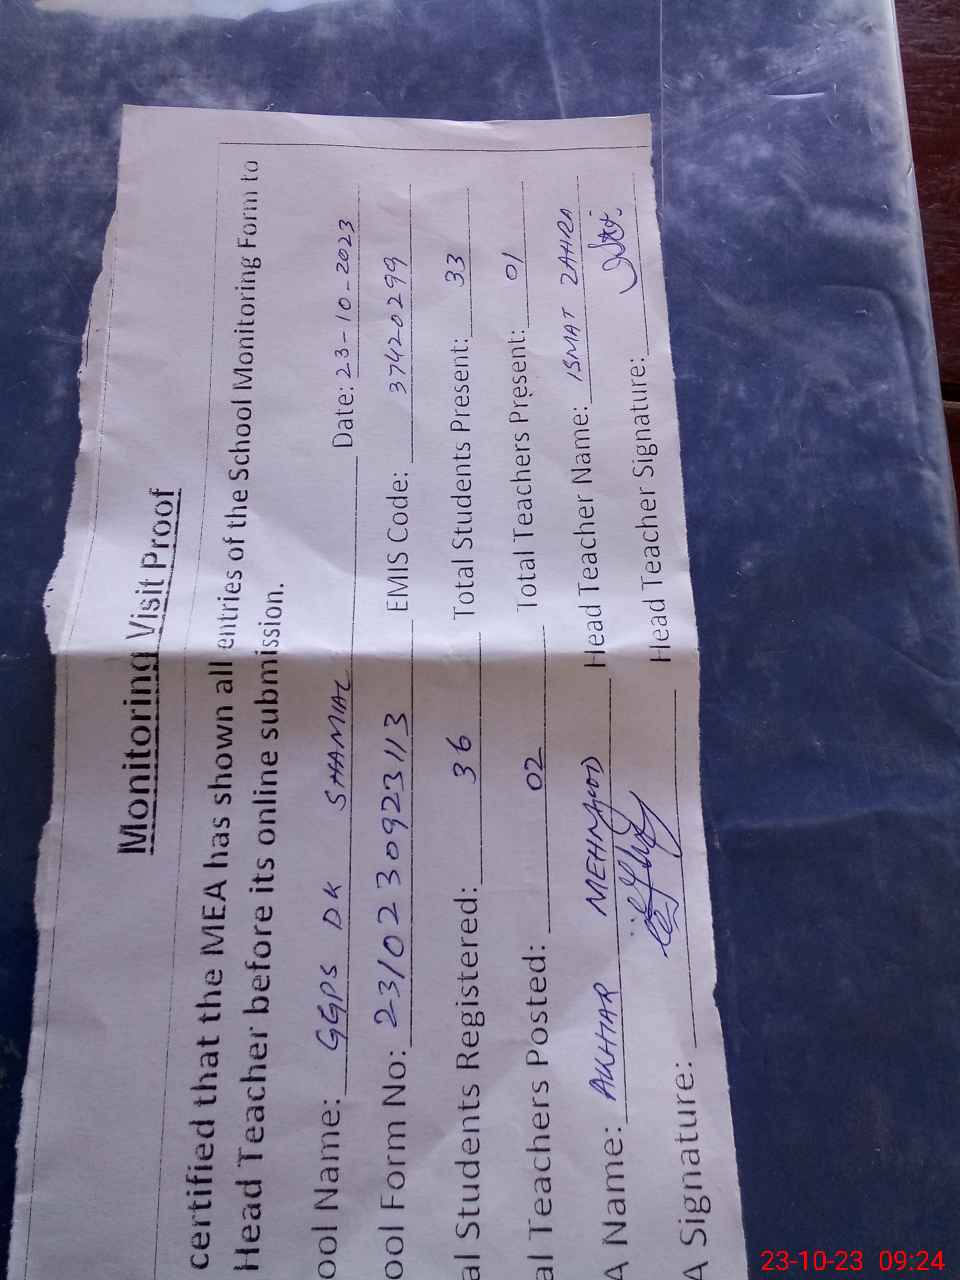 Monitoring Visit Proof
certified that the MEA has shown all entries of the School Monitoring Form to
Head Teacher before its online submission.
ool Name: GGPS DK SHAMIAL Date: 23-10-2023
ool Form No: 2310230923113 EMIS Code: 37420299
al Students Registered: 36 Total Students Present: 33
al Teachers Posted: 02 Total Teachers Present: 01
A Name: AKHTAR MEHMOOD Head Teacher Name: ISMAT ZAHRA
A Signature: Head Teacher Signature:
23-10-23 09:24